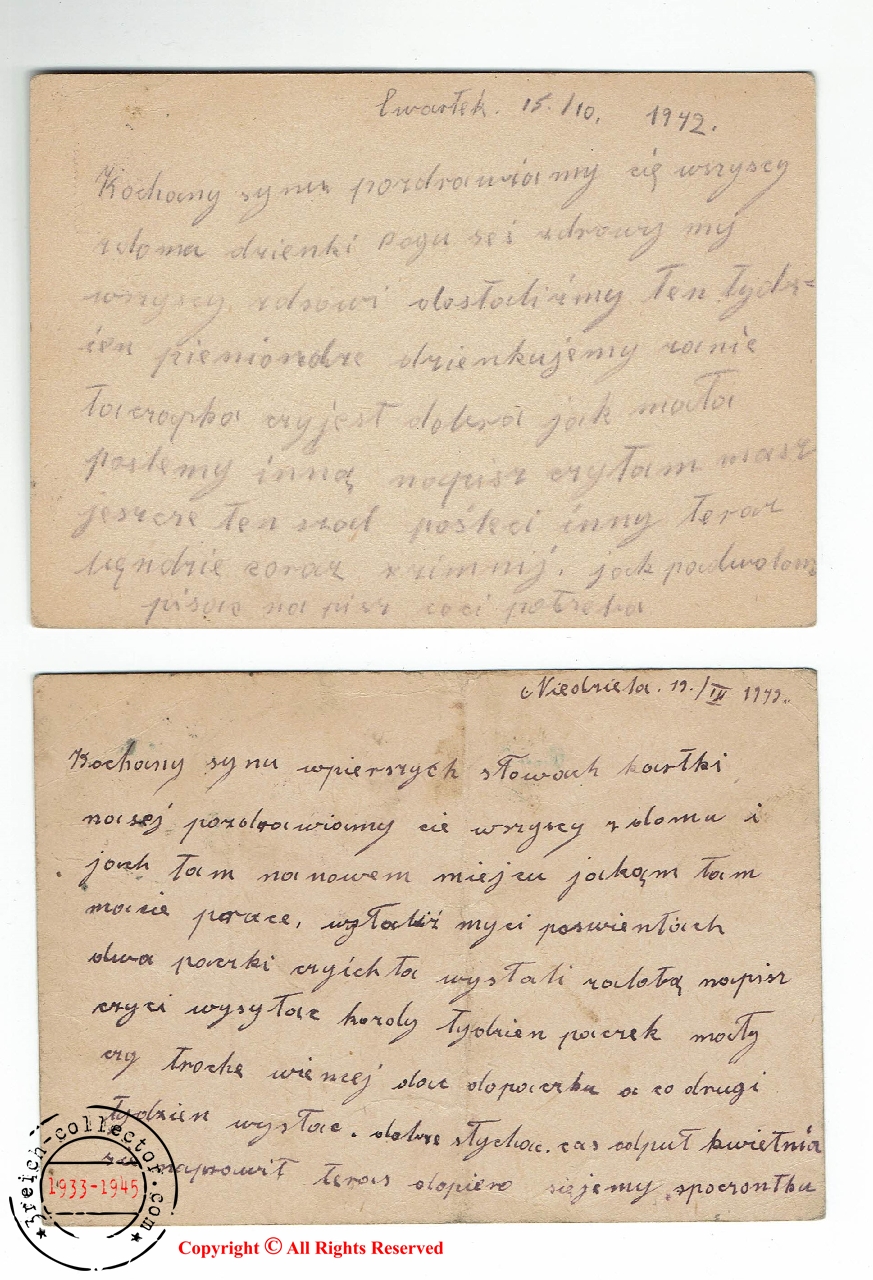 Czwartek. 15./10. 1942.
Kochany synu pozdrawiamy cię wszyscy
zdoma dzienki Bogu seś zdrowy my
wszyscy zdrowi dostaliźmy ten tydz-
ien pieniondze dzienkujemy zanie
ta czapka czyjest dobra jak mała
poslemy inną napisz czytam masz
jeszcze ten szal pośleci inny teraz
będzie coraz zzimnij. jak podwolom
pisac napisz coci potreba
Niedziela. 19./IV 1942.
Kochany synu wpierszych słowach kartki
nasej pozdrawiamy cie wszyscy z domu i
jach tam nanowem miejcu jakąm tam
macie prace, myci poswientach
dwa paczki czyich ta wystali zalobą napisz
czyci wysyłac kozdy tydzien paczek mały
czy troche wiencej dac dopaczku a co drugi
tydzien wysłac. dobrze słychac. cas odpuł kwietnia
naprawił teras dopiero siejemy spoczontku
3reich-collector.com
1933-1945
Copyright © All Rights Reserved